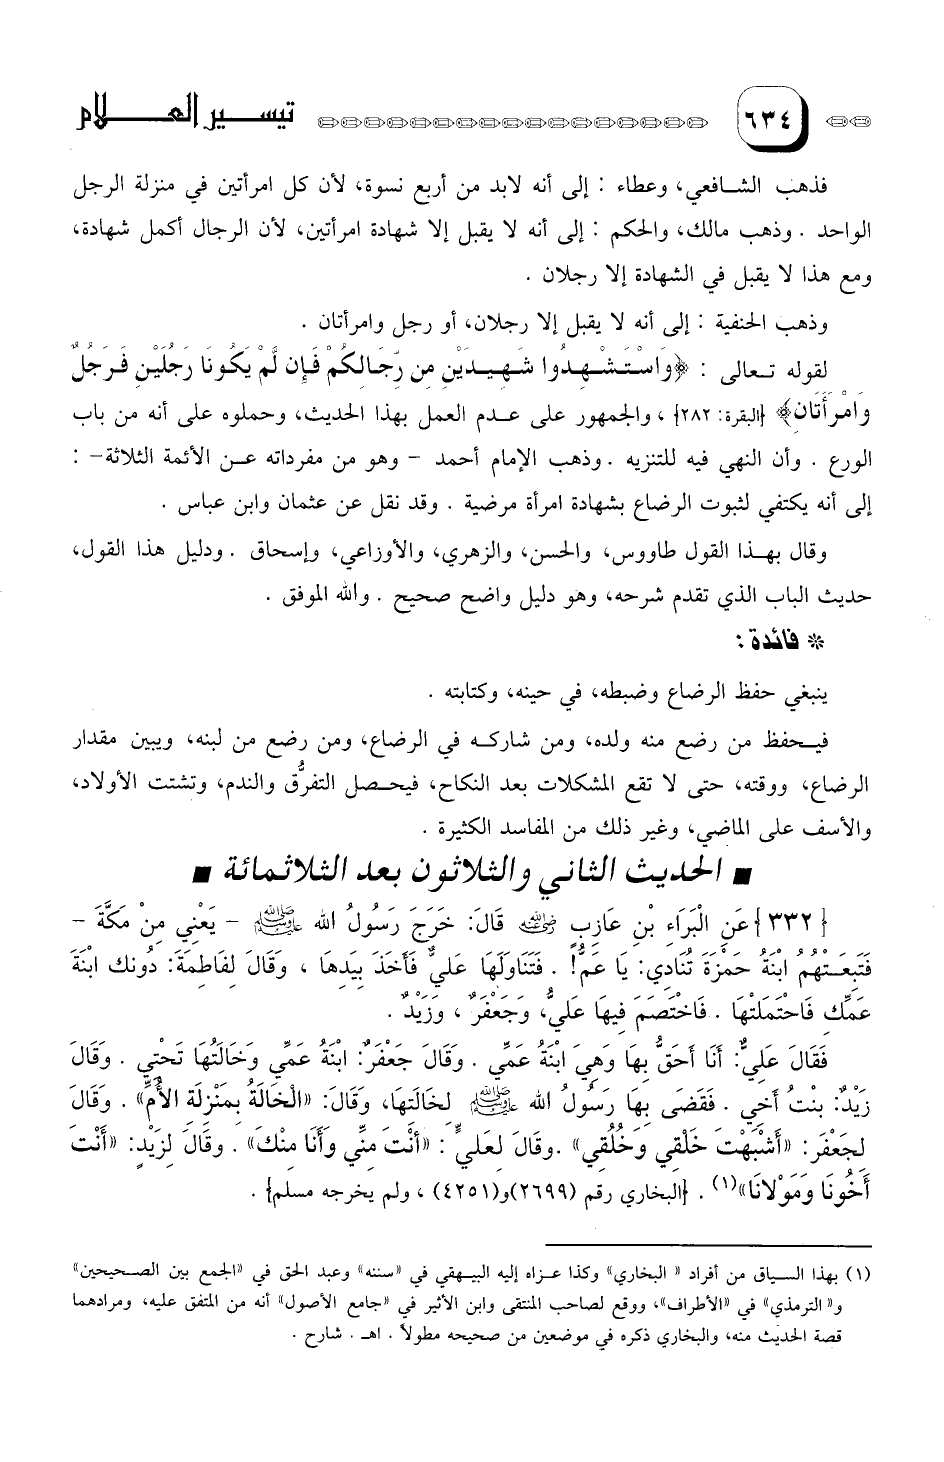 ٦٣٤ تيسير العلام
فذهب الشافعي، وعطاء : إلى أنه لابد من أربع نسوة، لأن كل امرأتين في منزلة الرجل
الواحد . وذهب مالك، والحكم : إلى أنه لا يقبل إلا شهادة امرأتين، لأن الرجال أكمل شهادة،
ومع هذا لا يقبل في الشهادة إلا رجلان .
وذهب الحنفية : إلى أنه لا يقبل إلا رجلان، أو رجل وامرأتان .
لقوله تعالى : ﴿وَاسْتَشْهِدُوا شَهِيدَيْنِ مِن رِّجَالِكُمْ فَإِن لَّمْ يَكُونَا رَجُلَيْنِ فَرَجُلٌ
وَامْرَأَتَانِ﴾ {البقرة: ٢٨٢} ، والجمهور على عدم العمل بهذا الحديث، وحملوه على أنه من باب
الورع . وأن النهي فيه للتنزيه . وذهب الإمام أحمد - وهو من مفرداته عن الأئمة الثلاثة- :
إلى أنه يكتفي لثبوت الرضاع بشهادة امرأة مرضية . وقد نقل عن عثمان وابن عباس .
وقال بهذا القول طاووس، والحسن، والزهري، والأوزاعي، وإسحاق . ودليل هذا القول،
حديث الباب الذي تقدم شرحه، وهو دليل واضح صحيح . والله الموفق .
* فائدة :
ينبغي حفظ الرضاع وضبطه، في حينه، وكتابته .
فيحفظ من رضع منه ولده، ومن شاركه في الرضاع، ومن رضع من لبنه، ويبين مقدار
الرضاع، ووقته، حتى لا تقع المشكلات بعد النكاح، فيحصل التفرُّق والندم، وتشتت الأولاد،
والأسف على الماضي، وغير ذلك من المفاسد الكثيرة .
■ الحديث الثاني والثلاثون بعد الثلاثمائة ■
{٣٣٢} عَنِ الْبَرَاءِ بْنِ عَازِبٍ رضي الله عنه قَالَ: خَرَجَ رَسُولُ الله ﷺ - يَعْنِي مِنْ مَكَّةَ -
فَتَبِعَتْهُمُ ابْنَةُ حَمْزَةَ تُنَادِي: يَا عَمُّ! . فَتَنَاوَلَهَا عَلِيٌّ فَأَخَذَ بِيَدِهَا ، وَقَالَ لِفَاطِمَةَ: دُونَكِ ابْنَةَ
عَمِّكِ فَاحْتَمَلَتْهَا . فَاخْتَصَمَ فِيهَا عَلِيٌّ، وَجَعْفَرٌ ، وَزَيْدٌ .
فَقَالَ عَلِيٌّ: أَنَا أَحَقُّ بِهَا وَهِيَ ابْنَةُ عَمِّي . وَقَالَ جَعْفَرٌ: ابْنَةُ عَمِّي وَخَالَتُهَا تَحْتِي . وَقَالَ
زَيْدٌ: بِنْتُ أَخِي . فَقَضَى بِهَا رَسُولُ الله ﷺ لِخَالَتِهَا، وَقَالَ: «الْخَالَةُ بِمَنْزِلَةِ الأُمِّ» . وَقَالَ
لِجَعْفَرٍ: «أَشْبَهْتَ خَلْقِي وَخُلُقِي» .وَقَالَ لِعَلِيٍّ : «أَنْتَ مِنِّي وَأَنَا مِنْكَ» . وَقَالَ لِزَيْدٍ: «أَنْتَ
أَخُونَا وَمَوْلاَنَا»(١) . {البخاري رقم (٢٦٩٩)و(٤٢٥١) ، ولم يخرجه مسلم} .
(١) بهذا السياق من أفراد « البخاري» وكذا عزاه إليه البيهقي في «سننه» وعبد الحق في «الجمع بين الصحيحين»
و« الترمذي» في «الأطراف»، ووقع لصاحب المنتقى وابن الأثير في «جامع الأصول» أنه من المتفق عليه، ومرادهما
قصة الحديث منه، والبخاري ذكره في موضعين من صحيحه مطولاً . اهـ . شارح .